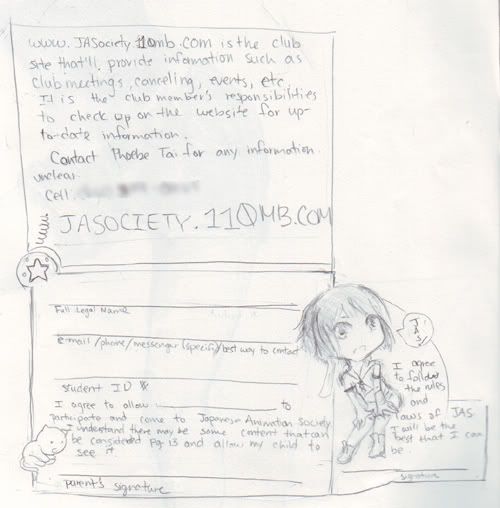 www.JASociety.110mb.com is the club
site that'll provide information such as
club meetings, canceling, events, etc.
It is the club member's responsibilities
to check up on the website for up-
to-date information.
Contact Phoebe Tai for any information
unclear.
Cell
JASOCIETY.110MB.COM
Full Legal Name
e-mail/phone/messenger (specify)/best way to contact
student ID #
I agree to allow ____________ to
participate and come to Japanese Animation Society
I understand there may be some content that can
be considered pg. 13 and allow my child to
see it
parent's signature
JAS
I agree
to follow
the rules
and
laws of JAS.
I will be the
best that I can
be.
signature